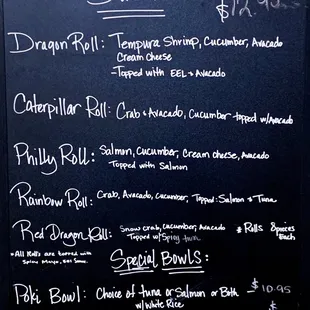 $12.95
Dragon Roll: Tempura Shrimp, Cucumber, Avacado
Cream Cheese
-Topped with EEL & Avacado
Caterpillar Roll: Crab & Avacado, Cucumber topped w/Avacado
Philly Roll: Salmon, Cucumber, Cream cheese, Avacado
Topped with Salmon
Rainbow Roll: Crab, Avacado, Cucumber, Topped: Salmon & Tuna
Red Dragon Roll: Snow crab, Cucumber, Avacado
Topped w/Spicy tuna
* Rolls 8 pieces
Each
* All Rolls are topped with
Spicy Mayo, Eel Sauce.
Special Bowls:
Poki Bowl: Choice of tuna or Salmon or Both - $10.95
w/White Rice
$